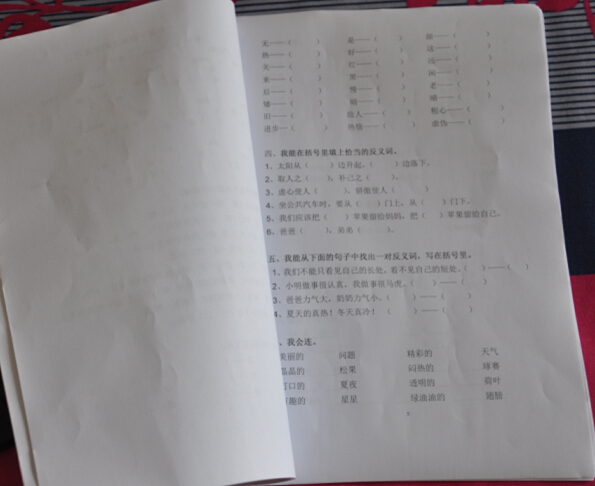 无——（ ） 是——（ ） ——（ ）
热——（ ） 好——（ ） 这——（ ）
——（ ） ——（ ） 远——（ ）
来——（ ） 哭——（ ） 闲——（ ）
后——（ ） 慢——（ ） 老——（ ）
矮——（ ） ——（ ） 睡——（ ）
旧——（ ） 敌人——（ ） 粗心——（ ）
进步——（ ） 热情——（ ） 虚伪——（ ）
四、我能在括号里填上恰当的反义词。
1、太阳从（ ）边升起，（ ）边落下。
2、取人之（ ），补己之（ ）。
3、虚心使人（ ），骄傲使人（ ）
4、坐公共汽车时，要从（ ）门上，从（ ）门下。
5、我们应该把（ ）苹果留给妈妈，把（ ）苹果留给自己。
6、爸爸（ ），弟弟（ ）。
五、我能从下面的句子中找出一对反义词，写在括号里。
1、我们不能只看见自己的长处，看不见自己的短处。（ ）——（ ）
2、小明做事很认真，我做事很马虎。（ ）——（ ）
3、爸爸力气大，奶奶力气小。（ ）——（ ）
4、夏天的真热！冬天真冷！（ ）——（ ）
、我会连。
美丽的 问题 精彩的 天气
晶的 松果 闷热的 球赛
可口的 夏夜 透明的 荷叶
趣的 星星 绿油油的 翅膀